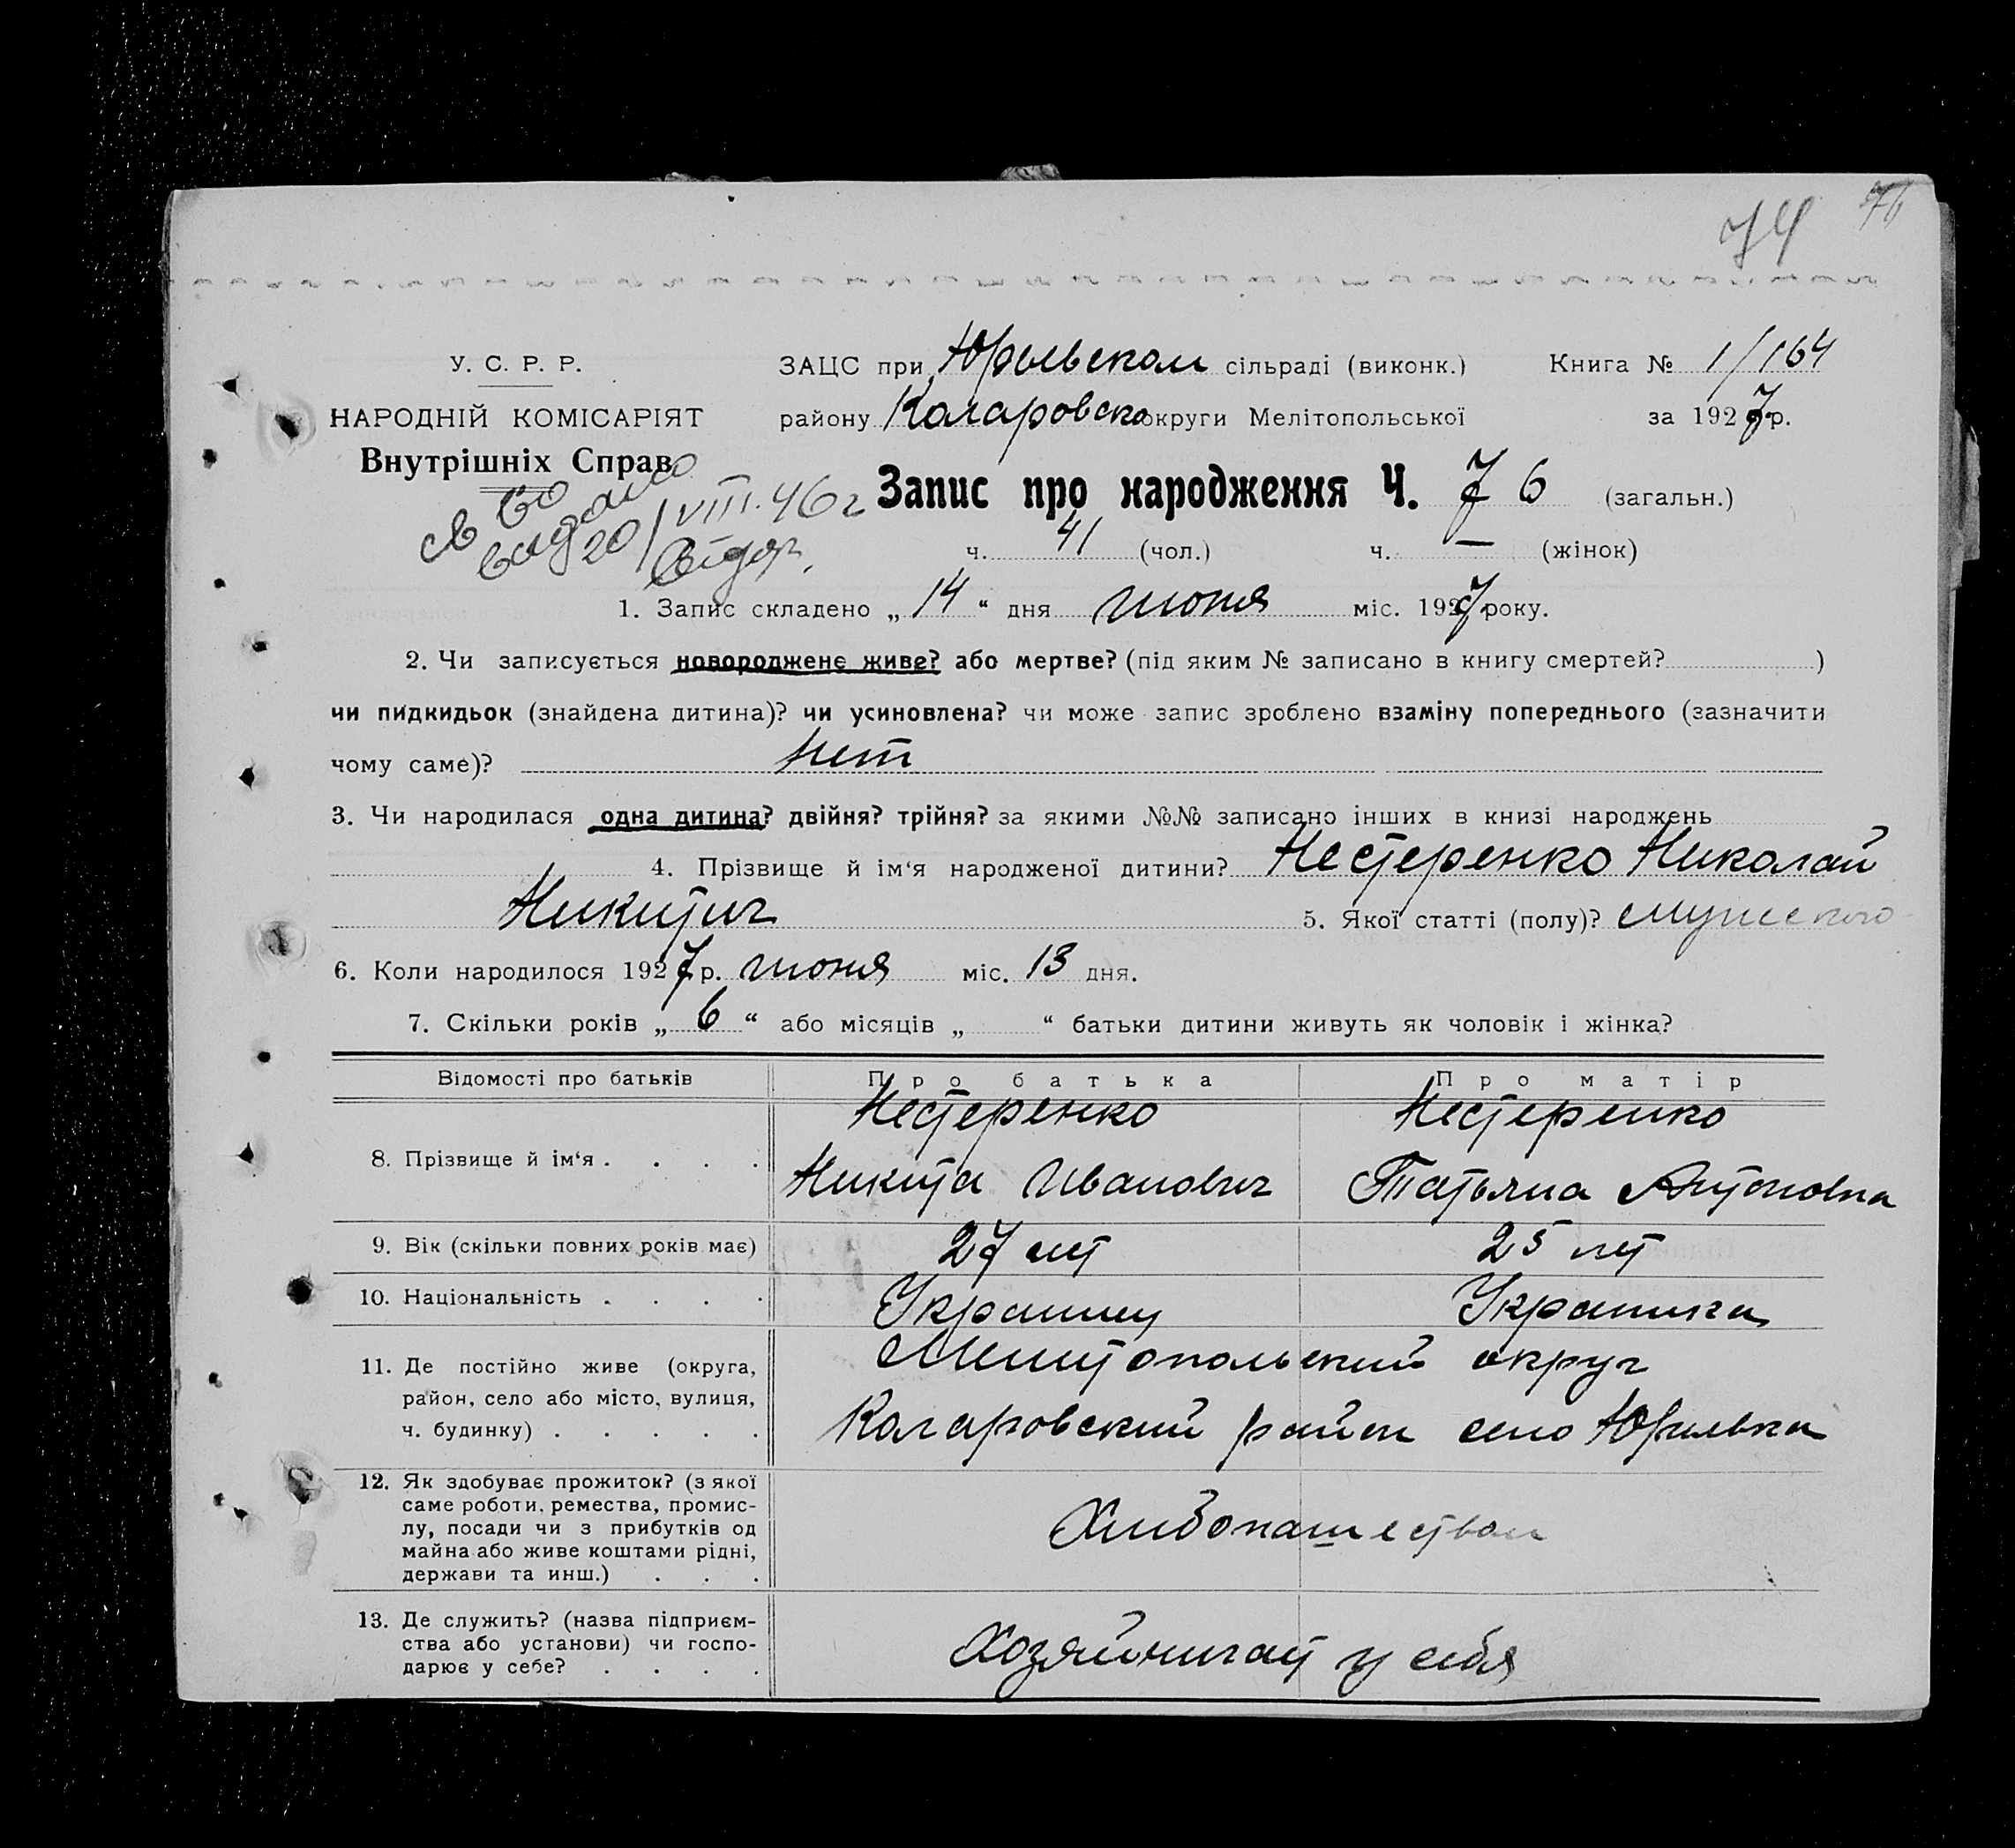 74 76
У. С. Р. Р.
НАРОДНІЙ КОМІСАРІЯТ
Внутрішніх Справ
св во
выдано
20/VIII.46 г
ЗАЦС при Юрьевском сільраді (виконк.) Книга № 1/164
району Коларовско округи Мелітопольської за 1927 р.
Запис про народження Ч. 76 (загальн.)
ч. 41 (чол.) ч. — (жінок)
1. Запис складено „ 14 “ дня июня міс. 1927 року.
2. Чи записується новороджене живе? або мертве? (під яким № записано в книгу смертей? )
чи пидкидьок (знайдена дитина)? чи усиновлена? чи може запис зроблено взаміну попереднього (зазначити
чому саме)? Нет
3. Чи народилася одна дитина? двійня? трійня? за якими №№ записано інших в книзі народжень
4. Прізвище й ім‘я народженої дитини? Нестеренко Николай
Никитич 5. Якої статті (полу)? мужского
6. Коли народилося 1927 р. июня міс. 13 дня.
7. Скільки років „ 6 “ або місяців „ “ батьки дитини живуть як чоловік і жінка?
Відомості про батьків Про батька Про матір
8. Прізвище й ім‘я . . . . Нестеренко Нестеренко
Никита Иванович Татьяна Антоновна
9. Вік (скільки повних років має) 27 лет 25 лет
10. Національність . . . . Украинец Украинка
11. Де постійно живе (округа, Мелитопольский округ
район, село або місто, вулиця, Коларовский район село Юрьевка
ч. будинку) . . . . .
12. Як здобуває прожиток? (з якої
саме роботи, ремества, промис-
лу, посади чи з прибутків од Хлибопашеством
майна або живе коштами рідні,
держави та инш.) . . .
13. Де служить? (назва підприєм-
ства або установи) чи госпо- Хозяйничает у себя
дарює у себе? . . . .